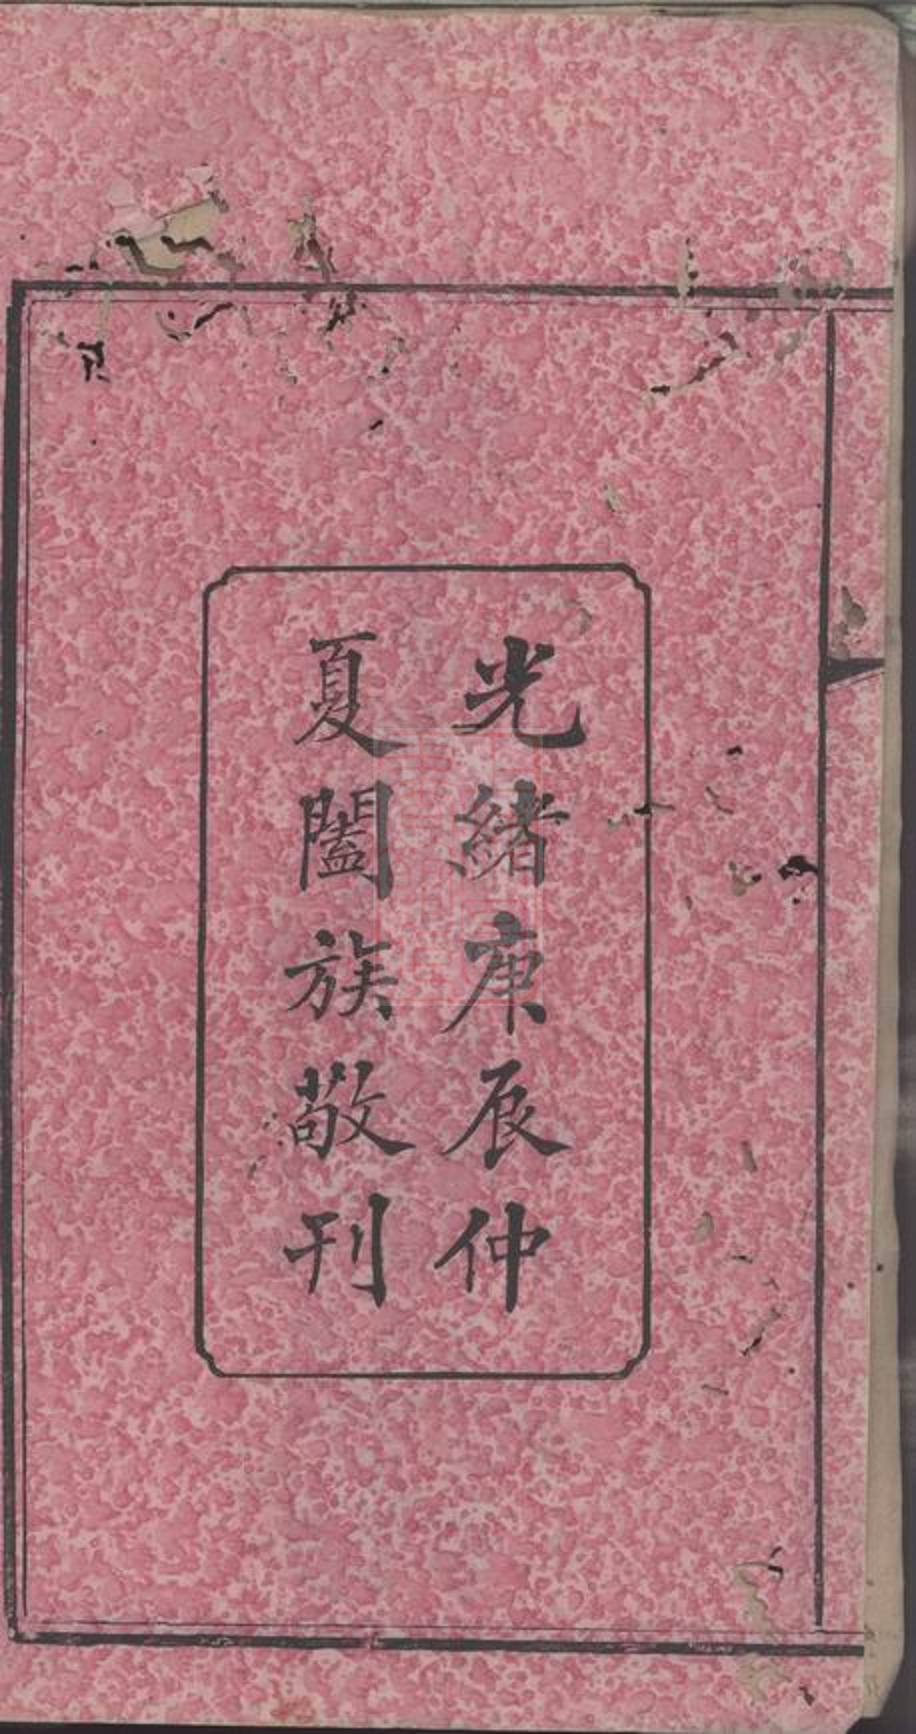 光緒庚辰仲
夏闔族敬刊